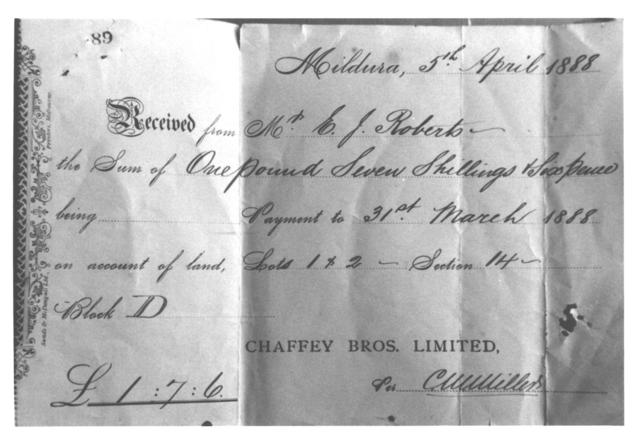 89
Mildura, 5th April 1888
Received from Mr. E. J. Roberts
the Sum of One pound Seven Shillings & Six pence
being Payment to 31st March 1888
on account of land, Lots 1 & 2 - Section 14 -
Block D
CHAFFEY BROS. LIMITED,
£ 1 : 7 : 6.
Per
Sands & McDougall Ltd., Printers, Melbourne.